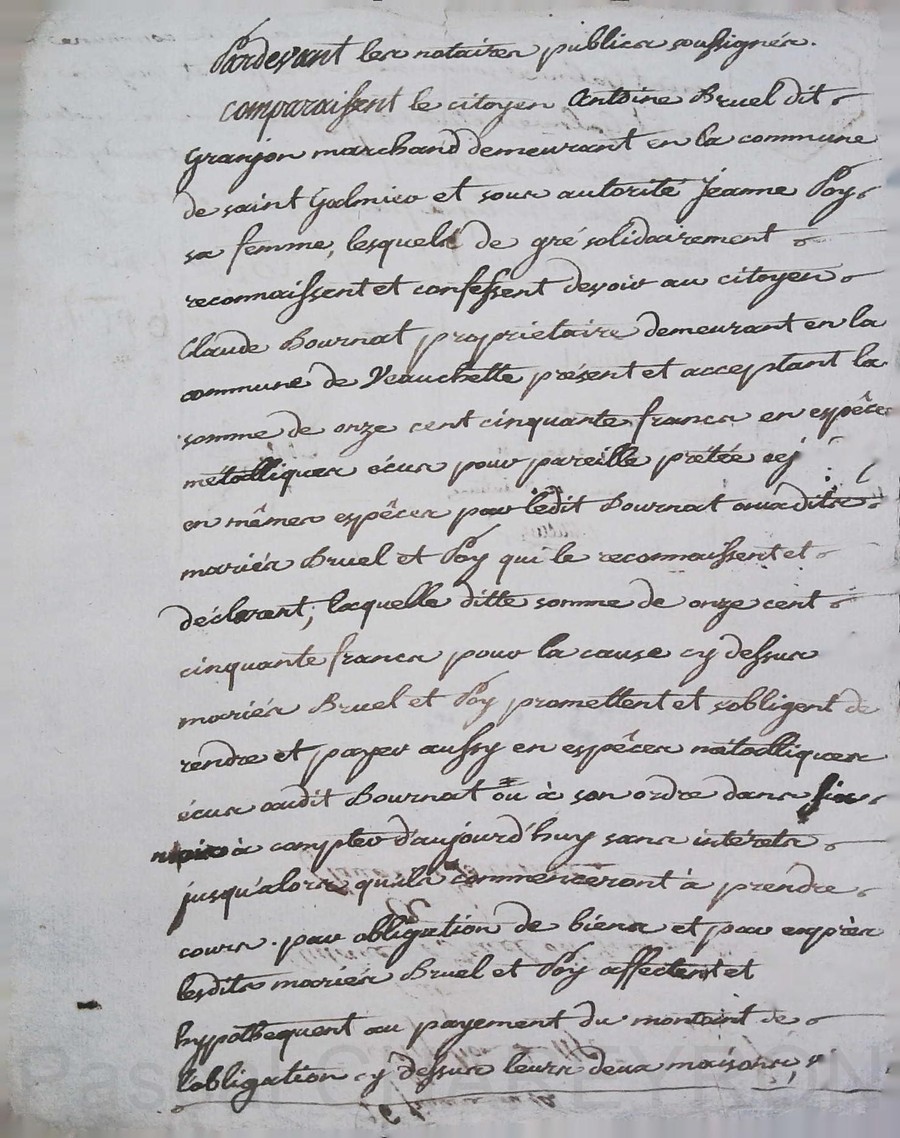 Pardevant les notaires publics soussignés.
comparaissent le citoyen Antoine Bruel dit
Granjon marchand demeurant en la commune
de saint Galmier et sous autorité Jeanne Poy
sa femme, lesquels de gré solidairement
reconnaissent et confessent devoir au citoyen
Claude Bournat proprietaire demeurant en la
commune de Veauchette présent et acceptant la
somme de onze cent cinquante francs en espêces
métalliques écus pour pareille pretée cej
en mêmes espêces par ledit Bournat auxdits
mariés Bruel et Poy qui le reconnaissent et
déclarent; laquelle ditte somme de onze cent
cinquante francs pour la cause cy dessus
mariés Bruel et Poy promettent et s'obligent de
rendre et payer aussy en espêces métalliques
écus audit Bournat ou à son ordre dans six
mois à compter d'aujourd'huy sans intérets
jusqu'alors quils commenceront à prendre
cours. par obligation de biens et par exprès
lesdits mariés Bruel et Poy affectent et
hypothequent au payement du montant de
l'obligation cy dessus leurs deux maisons,